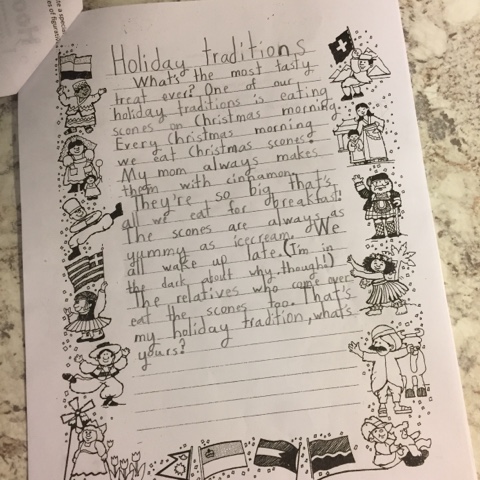 Holiday traditions
What's the most tasty
treat ever? One of our
holiday traditions is eating
scones on Christmas morning.
Every Christmas morning
we eat Christmas scones!
My mom always makes
them with cinnamon.
They're so big that's
all we eat for breakfast!
The scones are always as
yummy as icecream. We
all wake up late. (I'm in
the dark about why though!)
The relatives who come over
eat the scones too. That's
my holiday tradition, what's
yours?